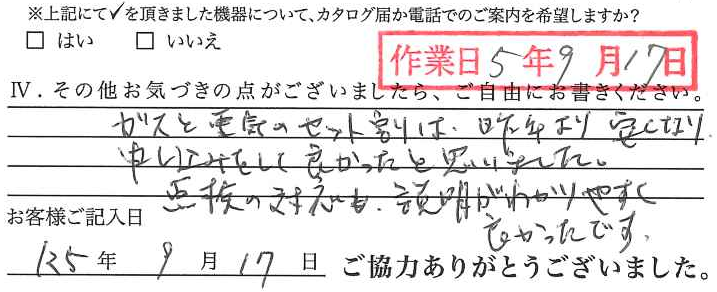 ※上記にて✓を頂きました機器について、カタログ届か電話でのご案内を希望しますか?
□ はい □ いいえ
作業日5年9月17日
Ⅳ．その他お気づきの点がございましたら、ご自由にお書きください。
ガスと電気のセット割りは、昨年より安くなり
申し込みをして良かったと思いました。
点検の対応も、説明がわかりやすく
良かったです。
お客様ご記入日
R5年 9月 17日 ご協力ありがとうございました。